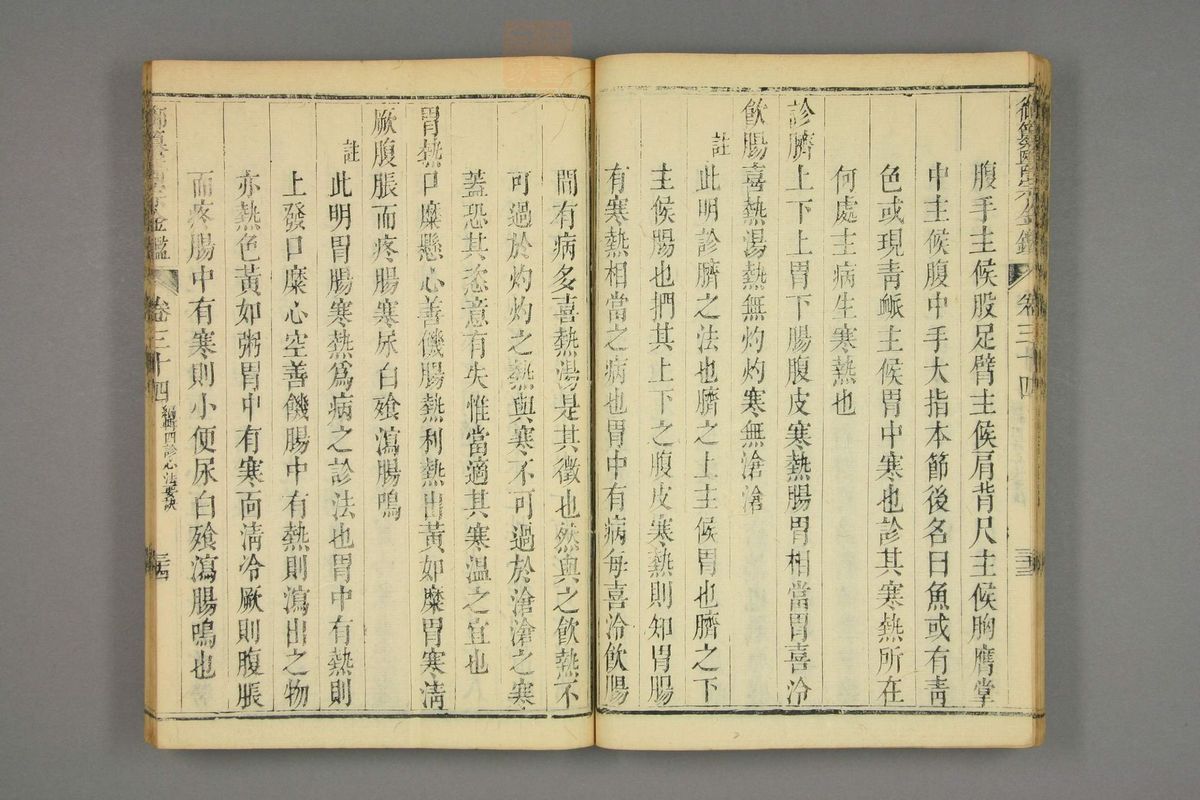 御纂醫宗金鑑 卷三十四
腹手主候股足臂主候肩背尺主候胸膺掌
中主候腹中手大指本節後名曰魚或有靑
色或現靑脈主候胃中寒也診其寒熱所在
何處主病生寒熱也
診臍上下上胃下腸腹皮寒熱腸胃相當胃喜冷
飮腸喜熱湯熱無灼灼寒無滄滄
註
此明診臍之法也臍之上主候胃也臍之下
主候腸也捫其上下之腹皮寒熱則知胃腸
有寒熱相當之病也胃中有病每喜冷飮腸
間有病多喜熱湯是其徵也然與之飮熱不
可過於灼灼之熱與寒不可過於滄滄之寒
蓋恐其恣意有失惟當適其寒溫之宜也
胃熱口糜懸心善饑腸熱利熱出黃如糜胃寒淸
厥腹脹而疼腸寒尿白飱瀉腸鳴
註
此明胃腸寒熱爲病之診法也胃中有熱則
上發口糜心空善饑腸中有熱則瀉出之物
亦熱色黃如粥胃中有寒面淸冷厥則腹脹
而疼腸中有寒則小便尿白飱瀉腸鳴也
御纂醫宗金鑑 卷三十四 編輯四診心法要訣